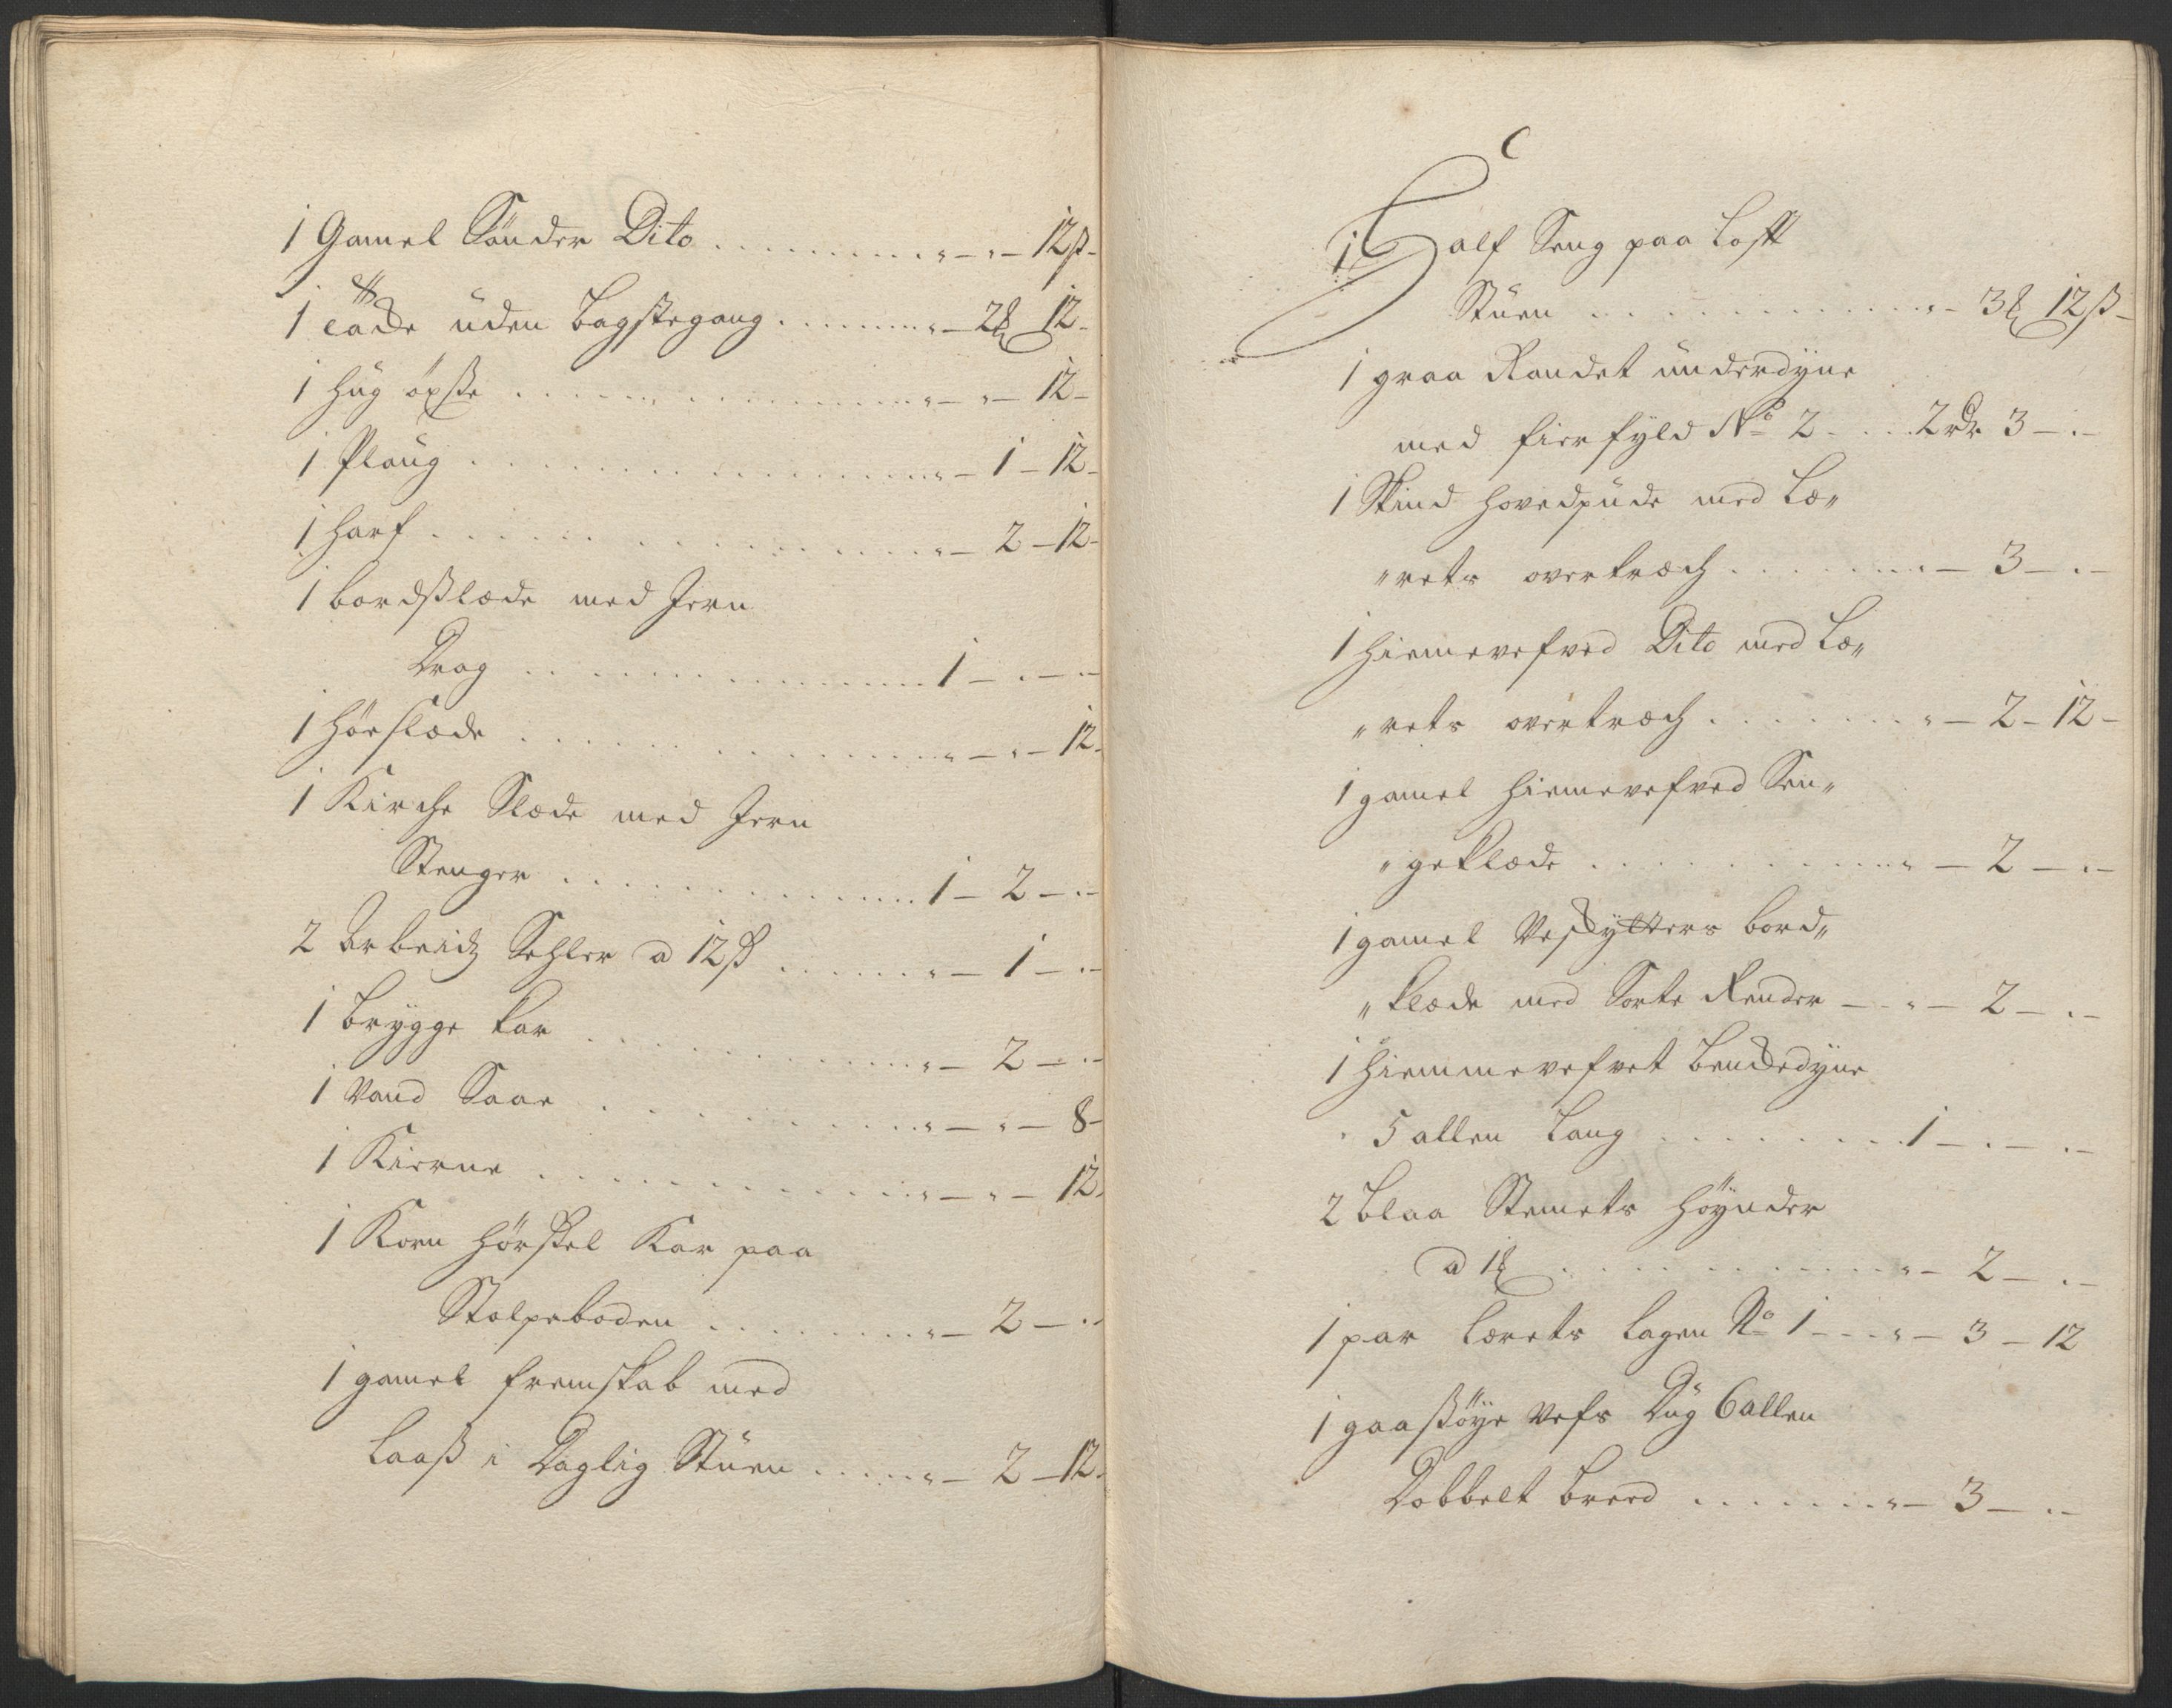 1 Gamel Sönder Dito ......... " — " — 12 ß -
1 Ladde uden bagstegang ....... " — 2 ℔ 12 -
1 hug öxse ......... " — " — 12 -
1 Ploug ......... " — 1 — 12 -
1 harf ......... " — 2 — 12 -
1 bordslæde med Jern
Drag ......... 1 — " — " —
1 höeslæde ......... " — " — 12 -
1 Kirche Slæde med Jern
Stenger ......... 1 — 2 — " -
2 Arbeidz Sehler a 12 ß ....... " — 1 — " -
1 brygge kar ......... " — 2 — " -
1 Vand Saae ......... " — " — 8 -
1 Kierne ......... " — " — 12 -
1 Korn hörskel Kar paa
Stolpeboden ......... " — 2 — " -
1 gamel fremskab med
Laaß i Daglig Stuen ...... " — 2 — 12 -
C
1 Half Seng paa Loft
Stuen ......... " — 3 ℔ 12 ß -
1 graa Randet underdyne
med fierfyld No 2 .... 2 rdr 3 — " -
1 Skind hovedpude med Læ„
„rets overtræch ......... " — 3 — " -
1 hiemevefved Dito med Læ„
„rets overtræch ......... " — 2 — 12 -
1 gamel hiemevefved Sen„
„geklæde ......... " — 2 — " -
1 gamel bord„
„klæde med Sorte Render — " — 2 — " -
1 hiemmevefvet benckedyne
5 allen Lang ......... 1 — " — " -
2 blaa Stemets höynder
a 1 ℔ ......... " — 2 — " -
1 par Lærets Lagen No 1 --- " — 3 — 12
1 gaasöye Vefs Dug 6 allen
Dobbelt breed ......... " — 3 — " -